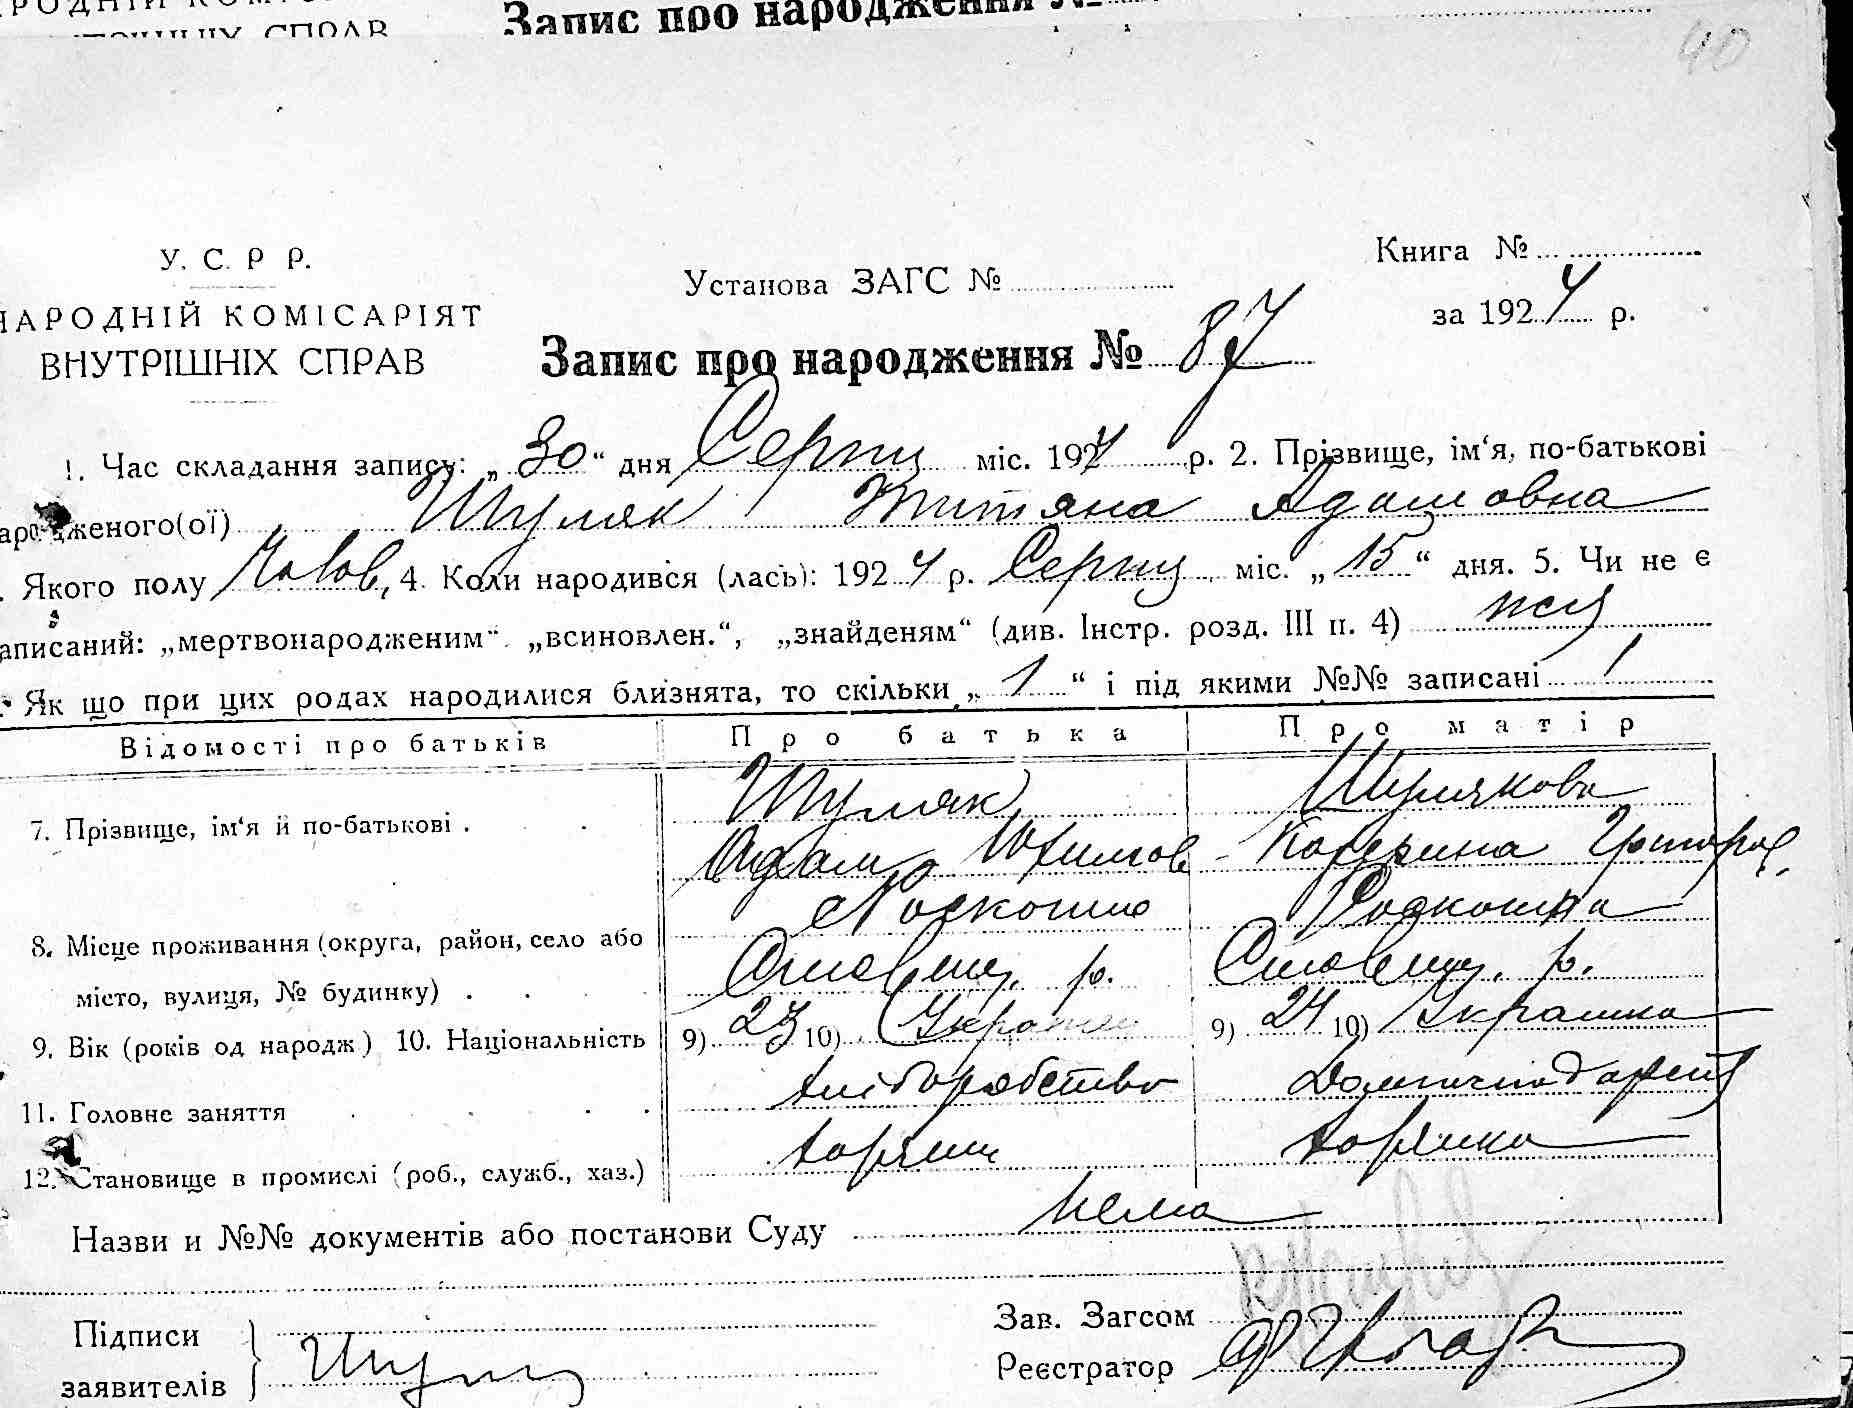 Запис про народження №
40
У. С. Р Р.
НАРОДНІЙ КОМІСАРІЯТ
ВНУТРІШНІХ СПРАВ
Установа ЗАГС №
Книга №
за 1924 р.
Запис про народження № 87
1. Час складання запису: „30“ дня Серпня міс. 1924 р. 2. Прізвище, ім‘я, по-батькові
народженого(ої) Шуляк Титяна Адамовна
Якого полу 4. Коли народився (лась): 1924 р. Серпня міс. „15“ дня. 5. Чи не є
записаний: „мертвонародженим“. „всиновлен.“, „знайденям“ (див. Інстр. розд. III п. 4)
Як що при цих родах народилися близнята, то скільки „1“ і під якими №№ записані
Відомості про батьків Про батька Про матір
7. Прізвище, ім‘я й по-батькові . Шуляк Шулякова
Адам Катерина Григоров.
Роскошна
8. Місце проживання (округа, район, село або
місто, вулиця, № будинку) . р. р.
9. Вік (років од народж) 10. Національність 9) 23 10) 9) 24 10) Украинка
11. Головне заняття хліборобство
12. Становище в промислі (роб., служб., хаз.)
Назви и №№ документів або постанови Суду нема
Зав. Загсом
Підписи
Реєстратор
заявителів